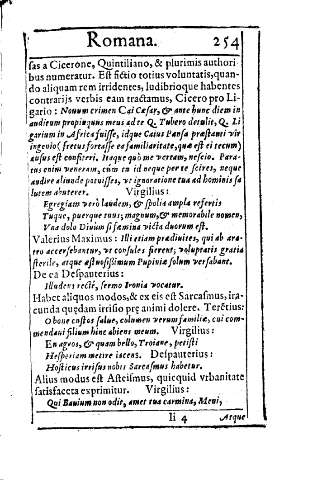 Romana. 254
sas a Cicerone, Quintiliano, & plurimis authori
bus numeratur. Est fictio totius voluntatis, quan-
do aliquam rem irridentes, ludibrioque habentes
contrarijs verbis eam tractamus, Cicero pro Li-
gario: Nouum crimen Cai Cæsar, & ante hunc diem in
auditum propinquus meus ad te Q. Tubero detulit, Q. Li
garium in Africa fuisse, idque Caius Pansa præstanti vir
ingenio (fretus fortasse ea familiaritate, quæ est ei tecum)
ausus est confiteri. Itaque quò me vertam, nescio. Para-
tus enim veneram, cùm tu id neque per te scires, neque
audire aliunde potuisses, vt ignoratione tua ad hominis sa
lutem abuterer. Virgilius:
Egregiam verò laudem, & spolia ampla refertis
Tuque, puerque tuus; magnum, & memorabile nomen,
Vna dolo Diuùm si fæmina victa duorum est.
Valerius Maximus: Illi etiam prædiuites, qui ab ara-
tro accersebantur, vt consules fierent, voluptatis gratia
sterile, atque æstuosissimum Pupiniæ solum versabant.
De ea Despauterius:
Illudens rectè, sermo Ironia vocatur.
Habet aliquos modos, & ex eis est Sarcasmus, ira-
cunda quędam irrisio pre animi dolore. Terẽtius:
O bone custos salue, columen verum familiæ, cui com-
mendaui filium hinc abiens meum. Virgilius:
En agros, & quam bello, Troiane, petisti
Hesperiam metire iacens. Despauterius:
Hosticus irrisus nobis Sarcasmus habetur.
Alius modus est Asteismus, quicquid vrbanitate
satisfaceta exprimitur. Virgilius:
Qui Bauium non odit, amet tua carmina, Meui,
Ii 4 Atque